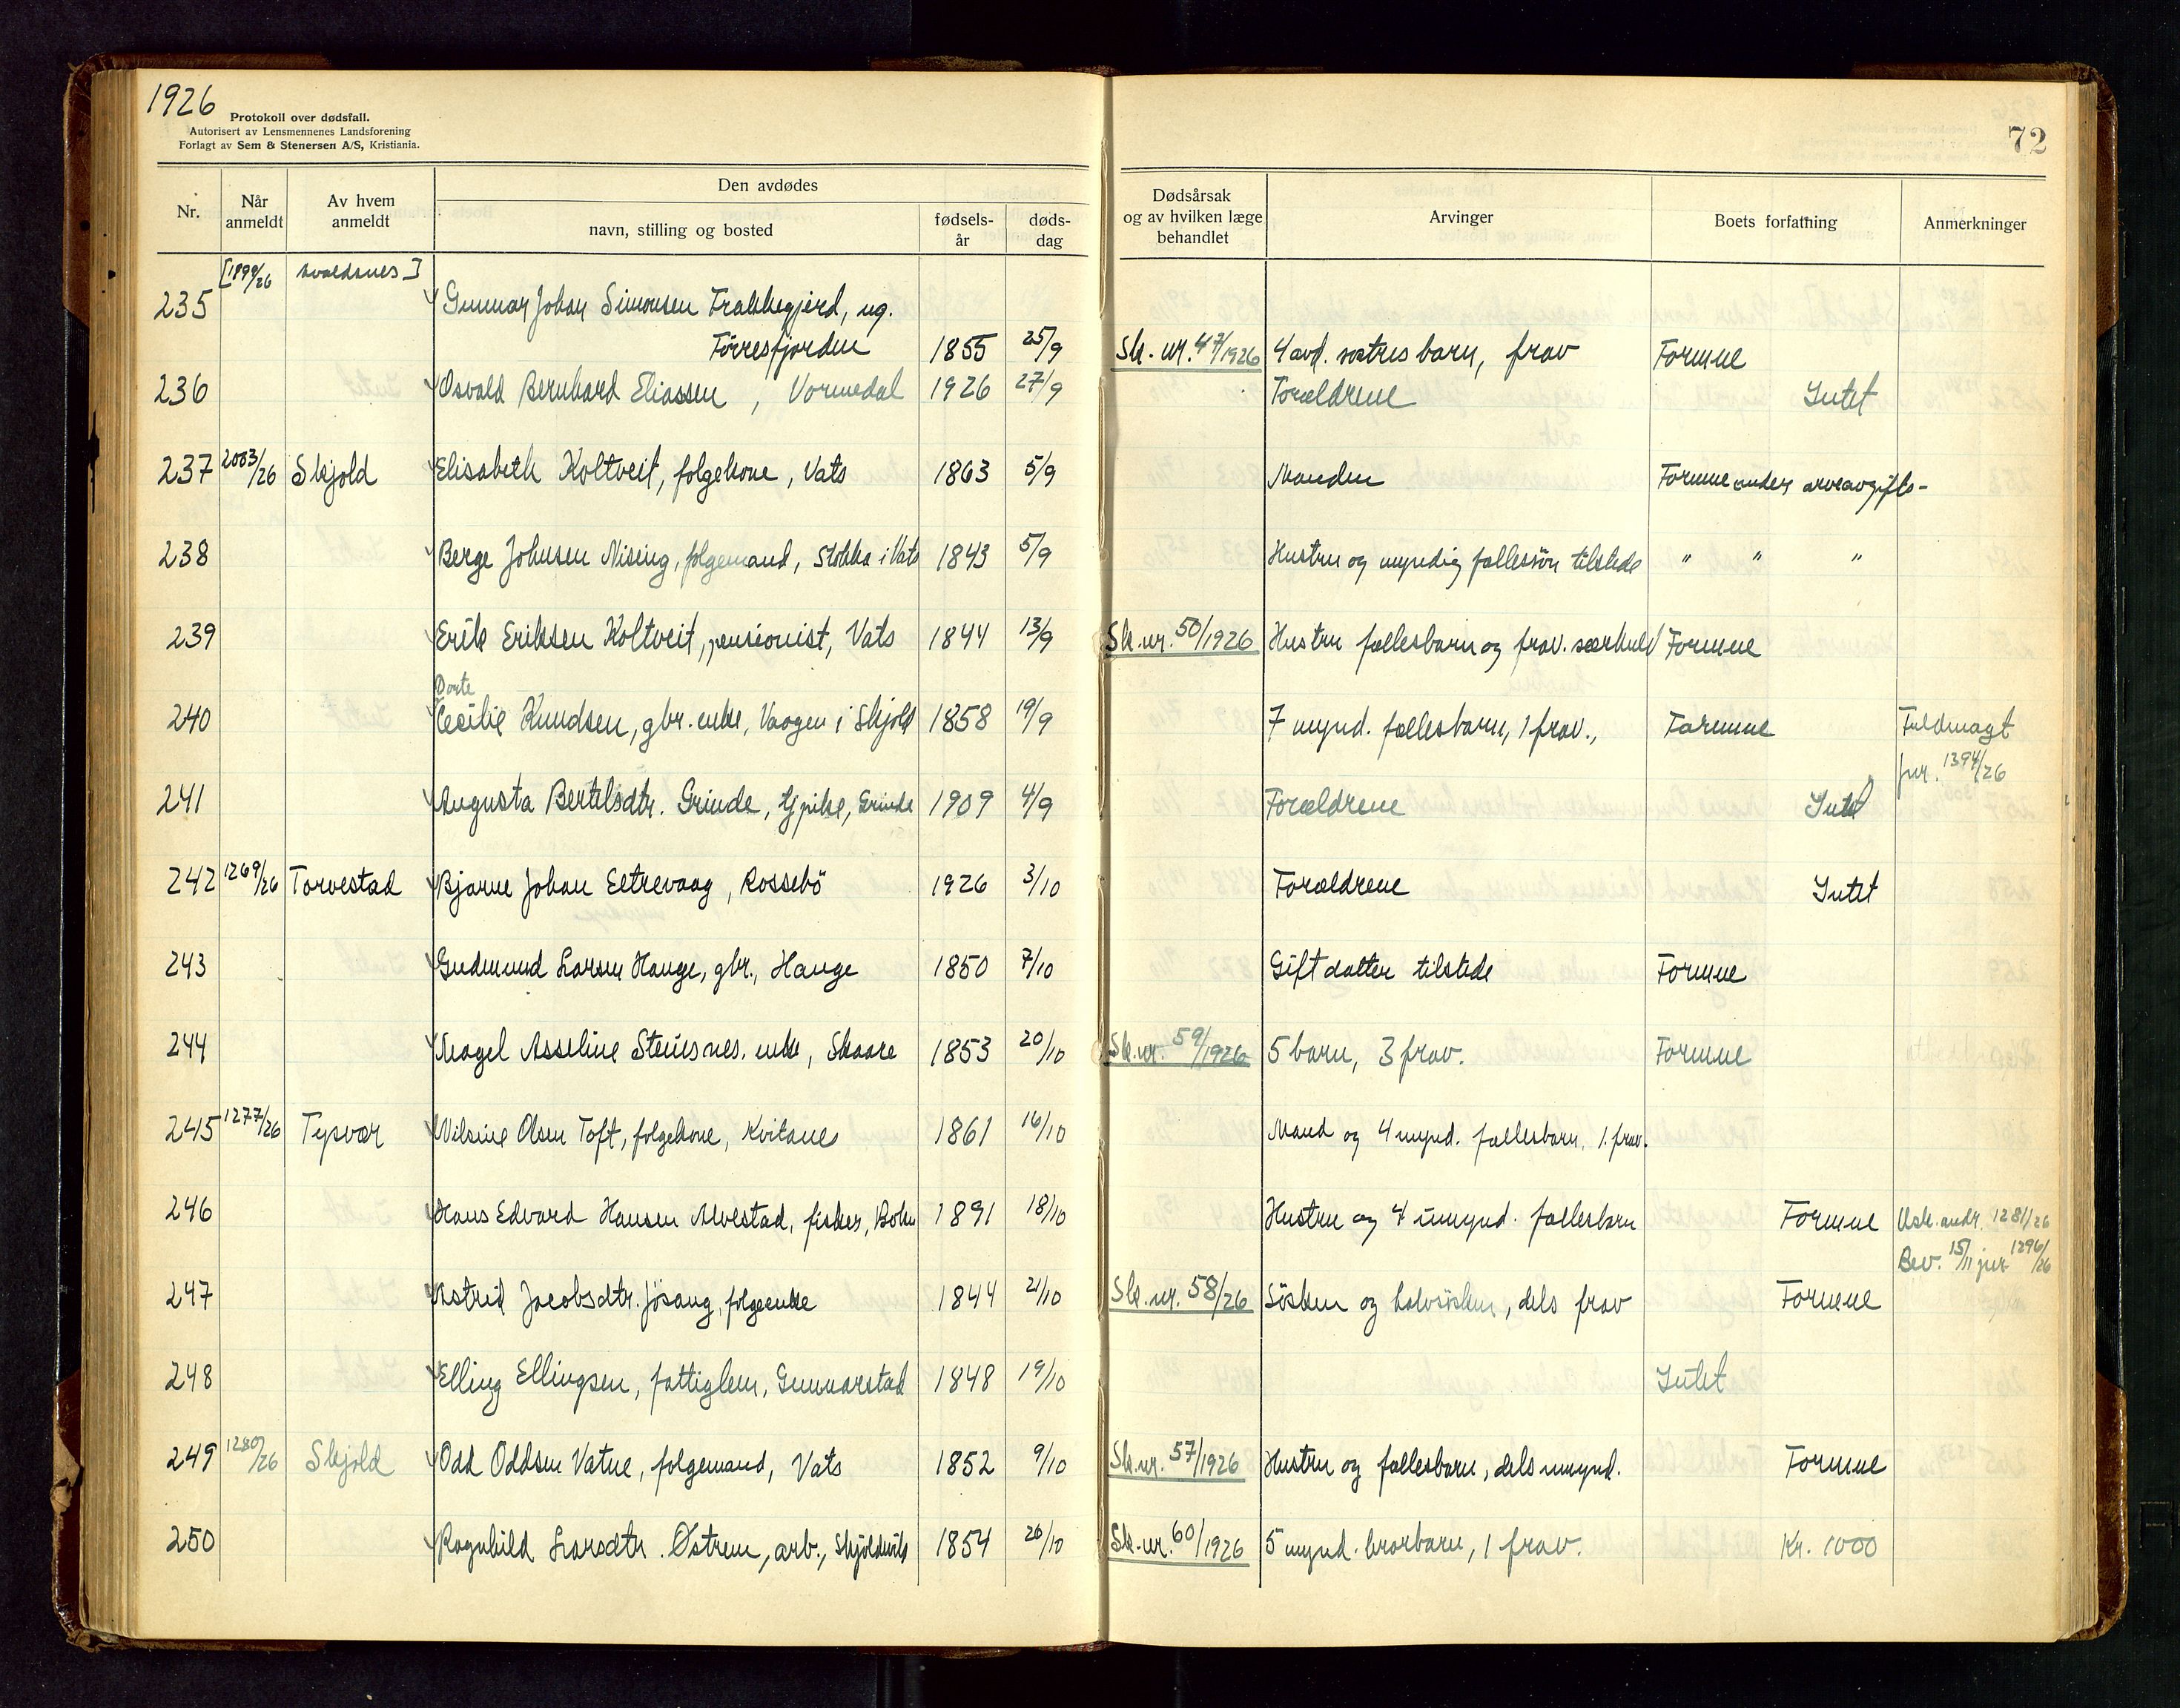 1926
Protokoll over dødsfall.
Autorisert av Lensmennenes Landsforening
Forlagt av Sem & Stenersen A/S, Kristiania.
72
Nr. Når anmeldt Av hvem anmeldt Den avdødes navn, stilling og bosted fødsels-år døds-dag Dødsårsak og av hvilken læge behandlet Arvinger Boets forfatning Anmerkninger
[1899/26 Avaldsnes]
235 Gunnar Johan Simonsen Frakkegjerd, ug.
Førresfjorden 1855 25/9 Sk. nr. 47/1926 4 avd. søstres barn, frav Formue
236 Osvald Bernhard Eliassen, Vormedal 1926 27/9 Forældrene Intet
237 2003/26 Skjold Elisabeth Koltveit, folgekone, Vats 1863 5/9 Manden Formue under arveavgifts-
238 Berge Johnsen Nising, folgemand, Stokka i Vats 1843 5/9 Hustru og myndig fællessøn tilstede " " "
239 Erik Eriksen Koltveit, pensionist, Vats 1844 13/9 Sk. nr. 50/1926 Hustru fællesbarn og frav. særkuld Formue
Dorte
240 Cecilie Knudsen, gbr. enke, Vaagen i Skjold 1858 19/9 7 mynd. fællesbarn, 1 frav., Formue Fuldmagt
jnr. 1394/26
241 Augusta Bertelsdtr. Grinde, tj.pike, Grinde 1909 4/9 Forældrene Intet
242 1269/26 Torvestad Bjarne Johan Eetrevaag, Rossebö 1926 3/10 Forældrene Intet
243 Gudmund Larsen Hauge, gbr., Hauge 1850 7/10 Gift datter tilstede Formue
244 Magel Asseline Steinsnes, enke, Skaare 1853 20/10 Sk. nr. 59/1926 5 barn, 3 frav. Formue
245 1277/26 Tysvær Nilsine Olsen Toft, folgekone, Kvitanes 1861 16/10 Mand og 4 mynd. fællesbarn, 1. frav.
246 Hans Edvard Hansen Alvestad, fisker, Bokn 1891 18/10 Hustru og 4 umynd. fællesbarn Formue Usk. andr. 1281/26
Bev. 15/11 jnr 1296/26
247 Astrid Jacobsdtr. Jösang, folgeenke 1844 21/10 Sk. nr. 58/26 Sösken og halvsösken, dels frav Formue
248 Elling Ellingsen, fattiglem, Gunnarstad 1848 19/10 Intet
249 1280/26 Skjold Odd Oddsen Vatne, folgemand, Vats 1852 9/10 Sk. nr. 57/1926 Hustru og fællesbarn, dels umynd. Formue
250 Ragnhild Larsdtr. Østrem, arb., Skjoldavik 1854 26/10 Sk. nr. 60/1926 5 mynd. brorbarn, 1 frav. Kr. 1000